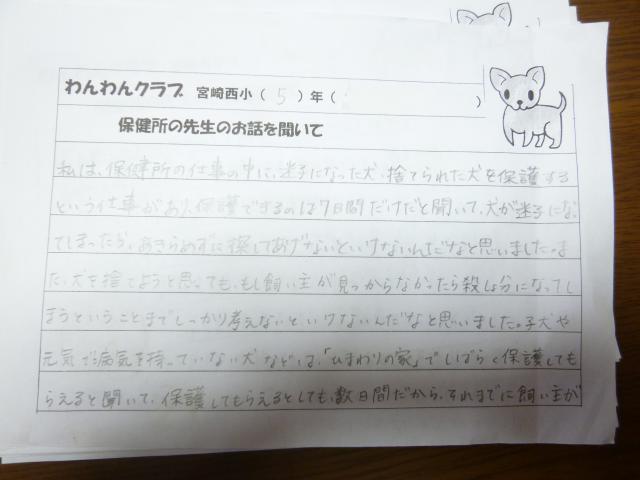 わんわんクラブ 宮崎西小（ 5 ）年（ ）
保健所の先生のお話を聞いて
私は、保健所の仕事の中に、迷子になった犬、捨てられた犬を保護する
という仕事があり、保護できるのは7日間だけだと聞いて、犬が迷子になっ
てしまったら、あきらめずに探してあげないといけないんだなと思いました。ま
た、犬を捨てようと思っても、もし飼い主が見つからなかったら殺しょ分になってし
まうということまでしっかり考えないといけないんだなと思いました。子犬や
元気で病気を持っていない犬などは、「ひまわりの家」でしばらく保護しても
らえると聞いて、保護してもらえるとしても、数日間だから、それまでに飼い主が